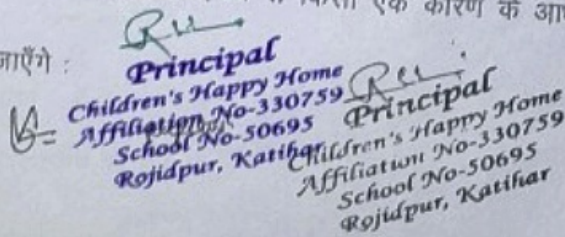 एक कारण के
जाएँगे :
Principal
Children's Happy Home
Affiliation No-330759
School No-50695
Rojidpur, Katihar
Principal
Children's Happy Home
Affiliation No-330759
School No-50695
Rojidpur, Katihar